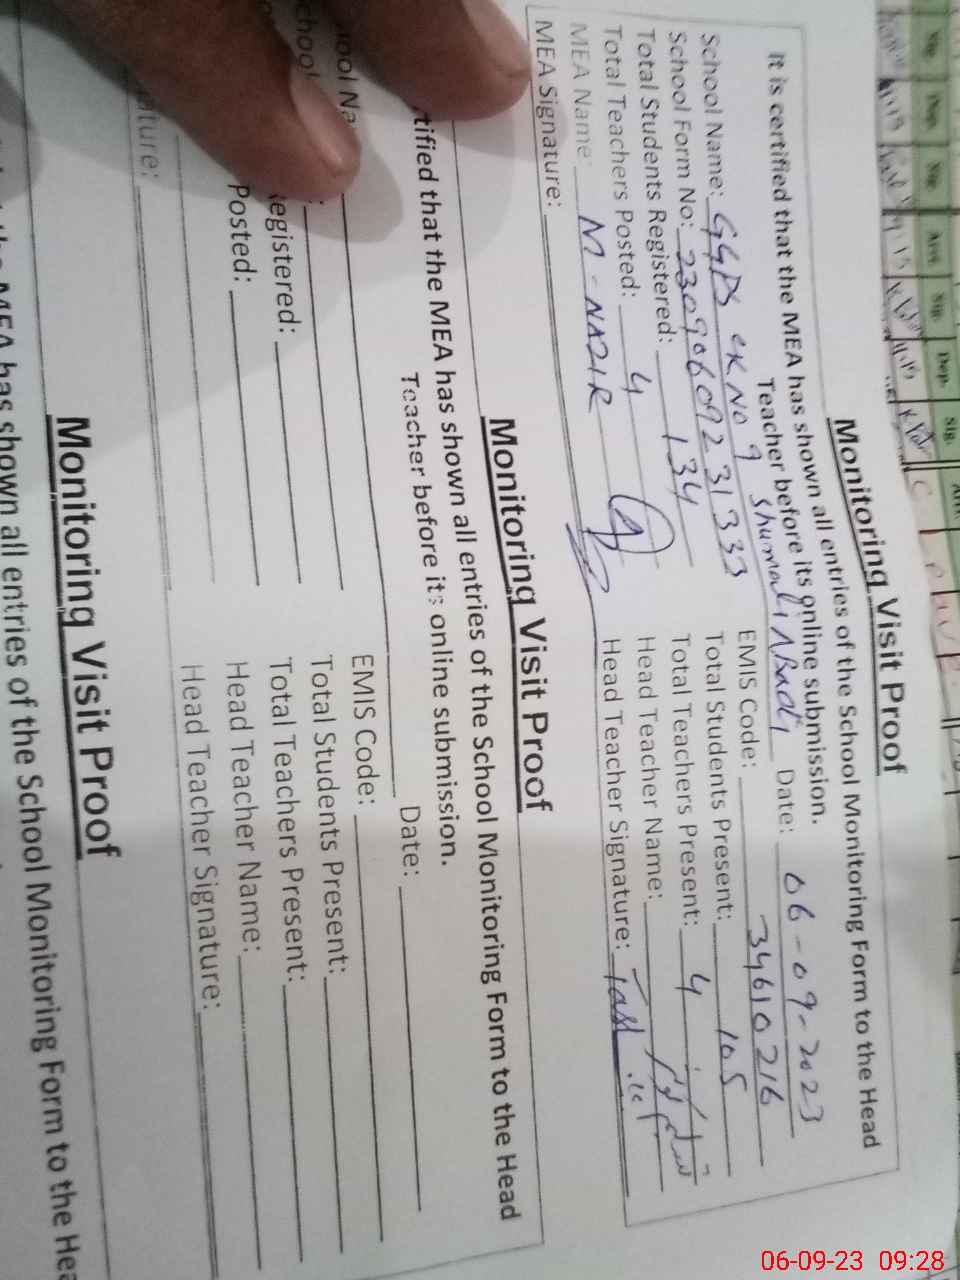 Sig. Dep. Sig. Arri. Sig. Dep. Sig.
Monitoring Visit Proof
It is certified that the MEA has shown all entries of the School Monitoring Form to the Head
Teacher before its online submission.
School Name: GGPS CK NO 9 Shumali Date: 06-09-2023
School Form No: 23090609231333 EMIS Code: 34610216
Total Students Registered: 134 Total Students Present: 105
Total Teachers Posted: 4 Total Teachers Present: 4
MEA Name: M-NAZIR Head Teacher Name:
MEA Signature: Head Teacher Signature:
Monitoring Visit Proof
tified that the MEA has shown all entries of the School Monitoring Form to the Head
Teacher before its online submission.
ool Na Date:
chool EMIS Code:
egistered: Total Students Present:
Posted: Total Teachers Present:
Head Teacher Name:
ature: Head Teacher Signature:
Monitoring Visit Proof
the MEA has shown all entries of the School Monitoring Form to the Hea
06-09-23 09:28